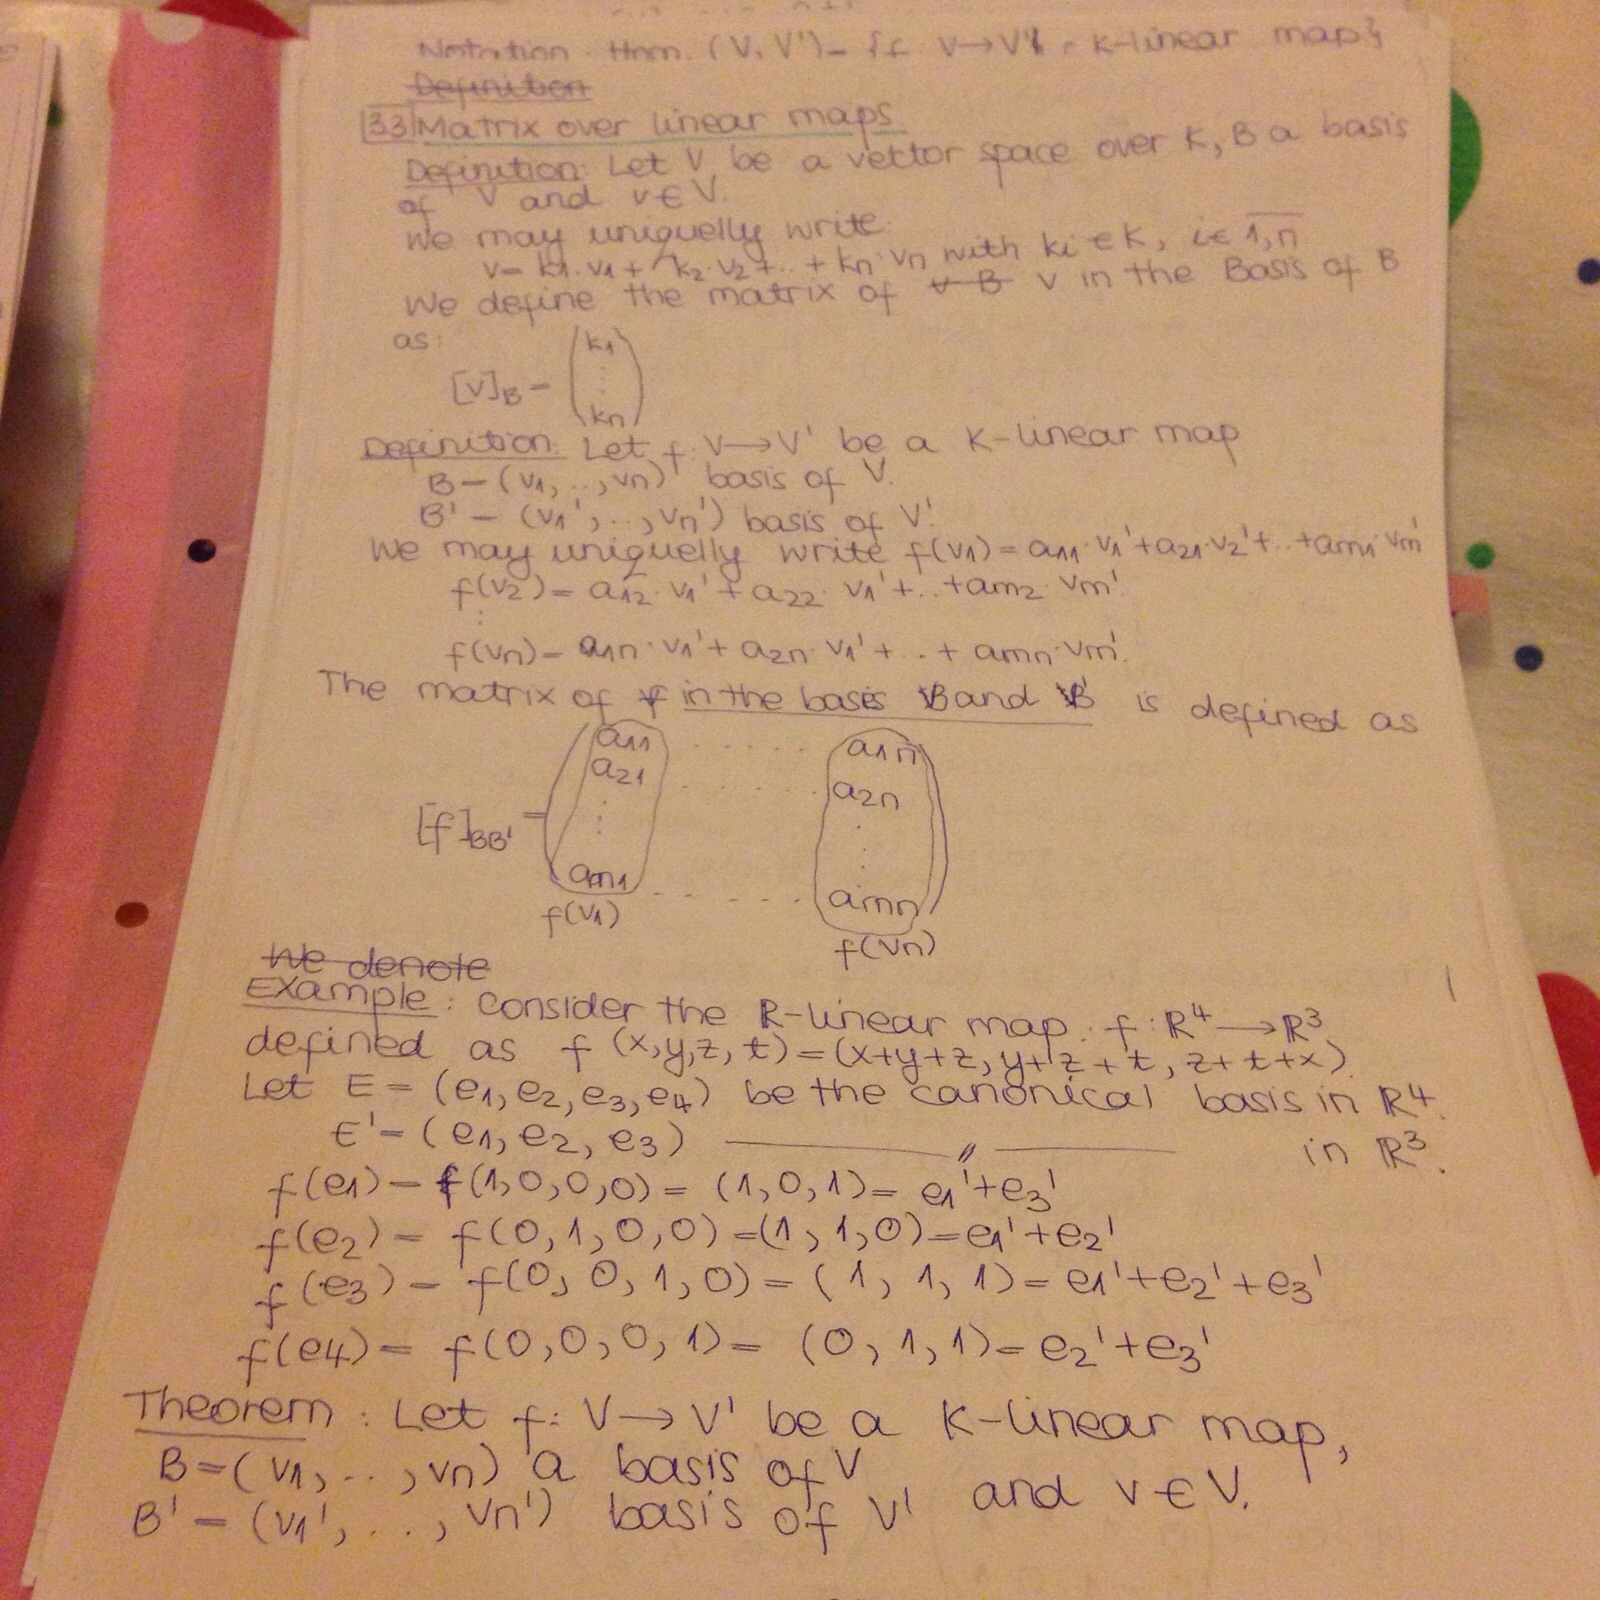 Notation Hom (V, V') = {f V→V' K-linear map}
Definition
33 Matrix over linear maps
Definition: Let V be a vector space over K, B a basis
of V and v∈V.
We may uniquelly write:
v= k1·v1+ k2·v2+..+kn·vn with ki∈K, i∈1,n.
We define the matrix of v B v in the Basis of B
as:
[v]B = (k1
⋮
kn)
Definition: Let f: V→V' be a K-linear map
B=(v1,..,vn) basis of V.
B'=(v1',..,vn') basis of V'.
We may uniquelly write f(v1)=a11·v1'+a21·v2'+..+am1·vm'
f(v2)=a12·v1'+a22·v1'+..+am2·vm'.
⋮
f(vn)=a1n·v1'+a2n·v1'+..+amn·vm'.
The matrix of f in the bases B and B' is defined as
a11 ..... a1n
a21 ..... a2n
[f]BB' = ⋮ ⋮
am1 ..... amn
f(v1) f(vn)
We denote
Example: Consider the R-linear map: f: R⁴→R³
defined as f (x,y,z,t)=(x+y+z, y+z+t, z+t+x)
Let E=(e1,e2,e3,e4) be the canonical basis in R⁴.
E'=(e1,e2,e3) —— // —— in R³.
f(e1)=f(1,0,0,0)=(1,0,1)=e1'+e3'
f(e2)=f(0,1,0,0)=(1,1,0)=e1'+e2'
f(e3)=f(0,0,1,0)=(1,1,1)=e1'+e2'+e3'
f(e4)=f(0,0,0,1)=(0,1,1)=e2'+e3'
Theorem: Let f: V→V' be a K-linear map,
B=(v1,..,vn) a basis of V
B'=(v1',...,vn') basis of V' and v∈V.